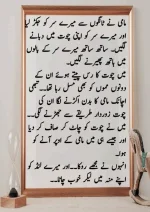 مامی نے ٹانگوں سے میرے سر کو جکڑ لیا
اور میرے سر کو اپنی چوت میں دبانے
لگیں۔ ساتھ ساتھ میرے سر کے بالوں
میں ہاتھ پھیرنے لگیں۔
میں چوت کا رس پیتے ہوئے ان کے
دونوں مموں کو بھی مسل رہا تھا۔ تبھی
اچانک مامی کا بدن اکڑنے لگا ان کی
چوت زوردار طریقے سے جھڑنے لگی۔
میں نے چوت کو چاٹ کر صاف کر دیا
میں نے مامی کے اوپر آنے کو
ہوا۔
انہوں نے مجھے روکا۔۔اور میرے لنڈ کو
اپنے منہ میں لیکر خوب چاٹا۔